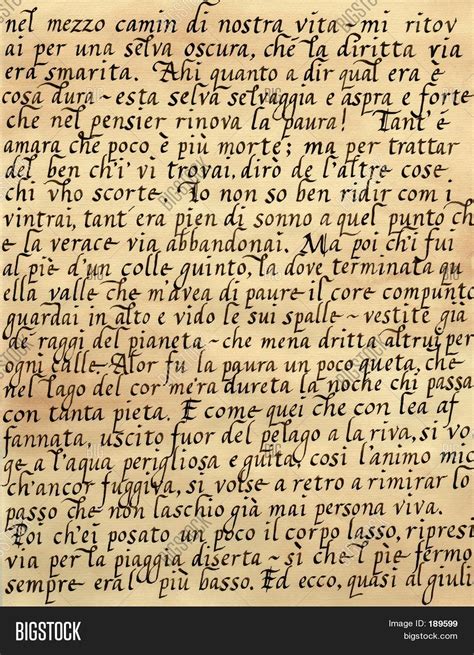 nel mezzo camin di nostra vita - mi ritov
ai per una selva oscura, che la diritta via
era smarita. Ahi quanto a dir qual era è
cosa dura - esta selva selvaggia e aspra e forte
che nel pensier rinova la paura! Tant'é
amara che poco è più morte; ma per trattar
del ben ch'i' vi trovai, dirò de l'altre cose
chi vho scorte. Io non so ben ridir com i
vintrai, tant era pien di sonno a quel punto ch
e la verace via abbandonai. Ma poi ch'i fui
al piè d'un colle guinto, la dove terminata qu
ella valle che m'avea di paure il core compunto
guardai in alto e vido le sui spalle - vestite già
de raggi del pianeta - che mena dritta altrui per
ogni calle. Alor fu la paura un poco queta, che
nel lago del cor m'era dureta la noche chi passa
con tanta pieta. E come quei che con lea af
fannata, uscito fuor del pelago a la riva, si vo
ge a l'aqua perigliosa e guita, cosi l'animo mio
ch'ancor fuggiva, si volse a retro a rimirar lo
passo che non laschio già mai persona viva.
Poi ch'ei posato un poco il corpo lasso, ripresi
via per la piaggia diserta - sì che l piè fermo
sempre era l più basso. Ed ecco, quasi al giuli
BIGSTOCK
Image ID: 189599
bigstock.com